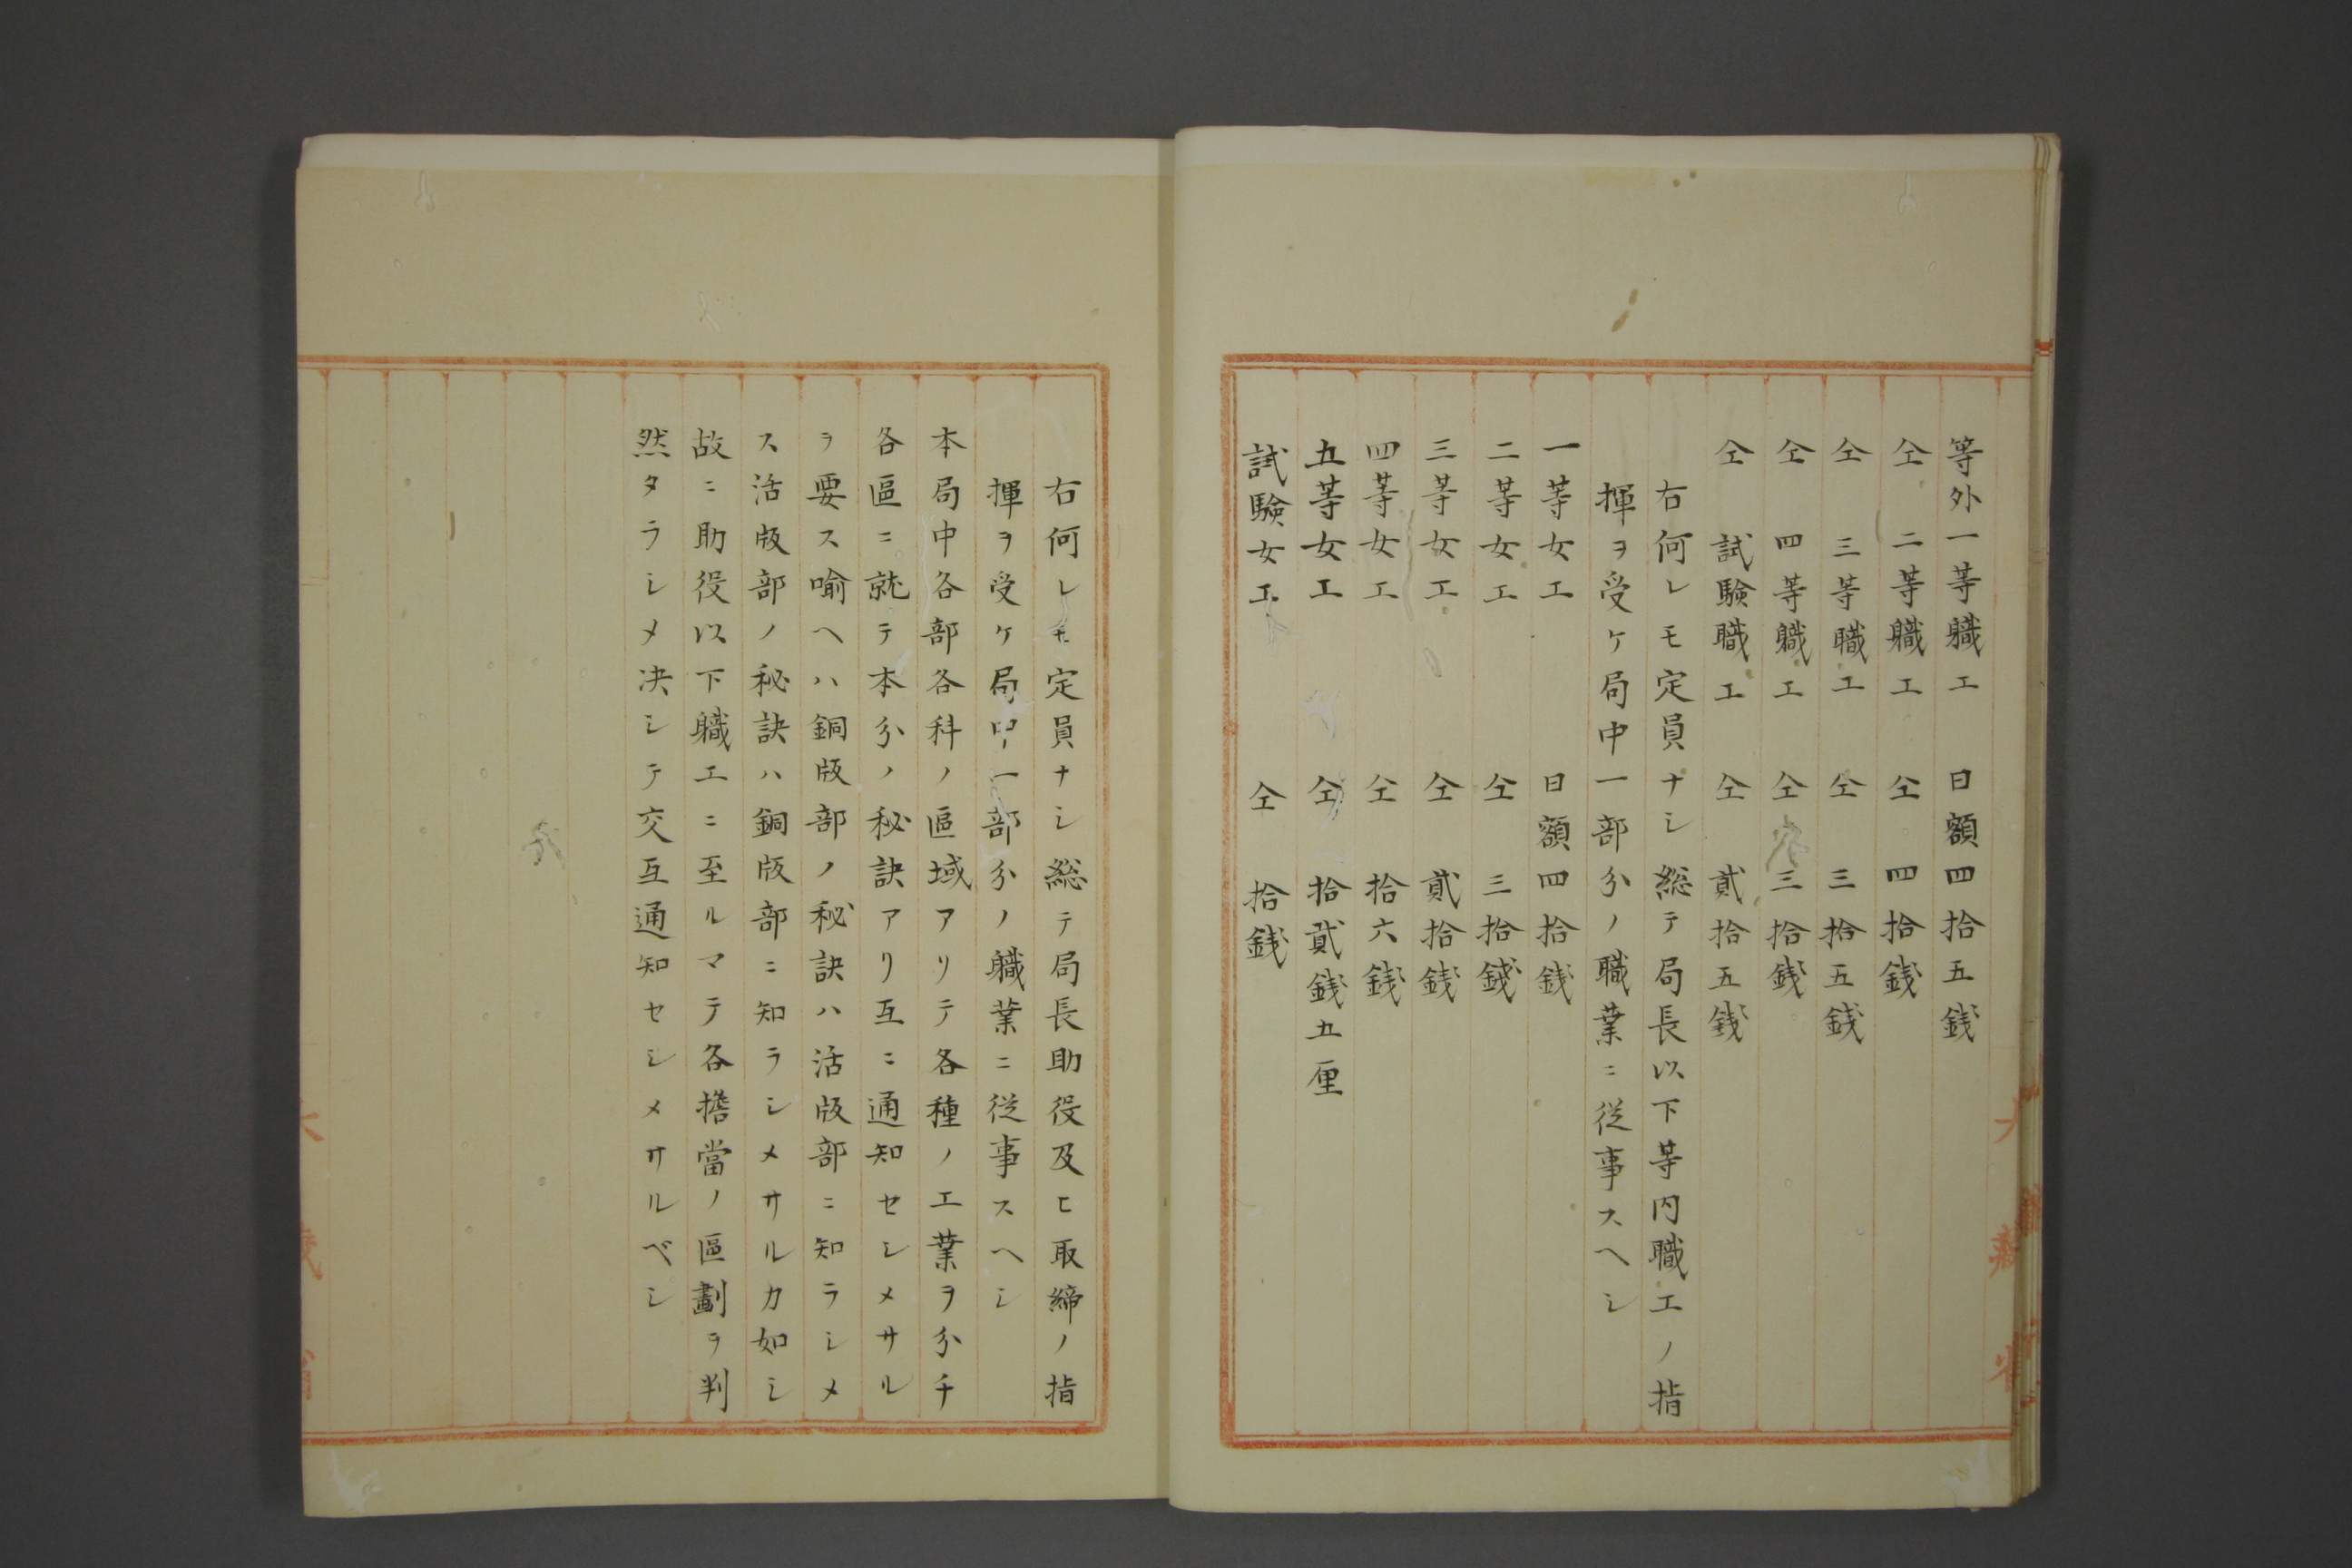 等外一等職工　日額四拾五銭
仝　二等職工　仝　四拾銭
仝　三等職工　仝　三拾五銭
仝　四等職工　仝　三拾銭
仝　試験職工　仝　貳拾五銭
右何レモ定員ナシ総テ局長以下等内職工ノ指
揮ヲ受ケ局中一部分ノ職業ニ従事スヘシ
一等女工　日額四拾銭
二等女工　仝　三拾銭
三等女工　仝　貳拾銭
四等女工　仝　拾六銭
五等女工　仝　拾貳銭五厘
試験女工　仝　拾銭
右何レモ定員ナシ総テ局長助役及ヒ取締ノ指
揮ヲ受ケ局中一部分ノ職業ニ従事スヘシ
本局中各部各科ノ區域アリテ各種ノ工業ヲ分チ
各區ニ就テ本分ノ秘訣アリ互ニ通知セシメサル
ヲ要ス喻ヘハ銅版部ノ秘訣ハ活版部ニ知ラシメ
ス活版部ノ秘訣ハ銅版部ニ知ラシメサルカ如シ
故ニ助役以下職工ニ至ルマテ各擔當ノ區劃ヲ判
然タラシメ决シテ交互通知セシメサルベシ